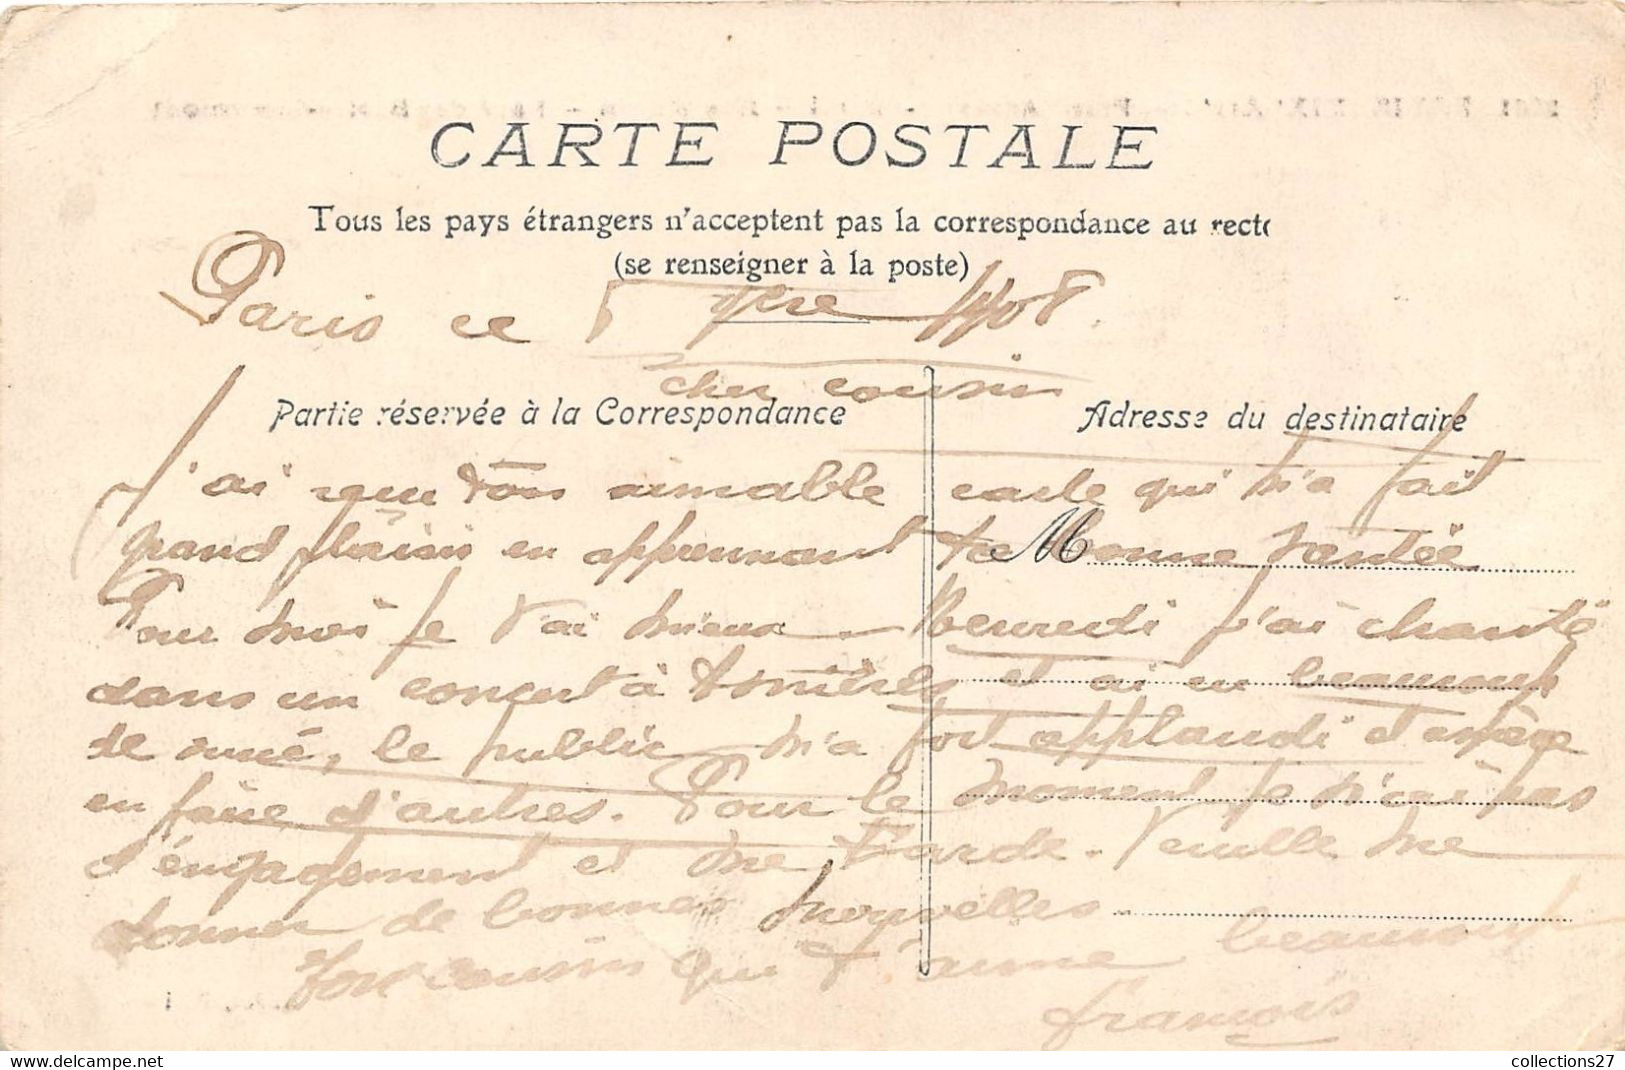 CARTE POSTALE
Tous les pays étrangers n'acceptent pas la correspondance au recto
(se renseigner à la poste)
Paris ce 5 9bre 1908
cher cousin
Partie réservée à la Correspondance
Adresse du destinataire
J'ai reçu ton aimable carte qui m'a fait
grand plaisir en apprennant ta bonne santée
M
Pour moi je vai mieux. Mercredi j'ai chanté
dans un concert à Asnières et ai eu beaucoup
de succé, le public m'a fort applaudi et espère
en faire d'autres. Pour le moment je n'ai pas
d'engagement et me tarde. Veuille me
donner de bonnes nouvelles
Ton cousin qui t'aime beaucoup
François
collections27